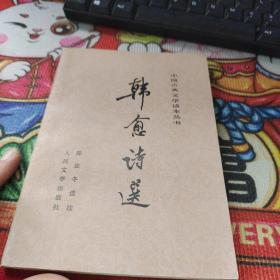 中国古典文学读本丛书
韩愈诗选
陈迩冬选注
人民文学出版社
VERY